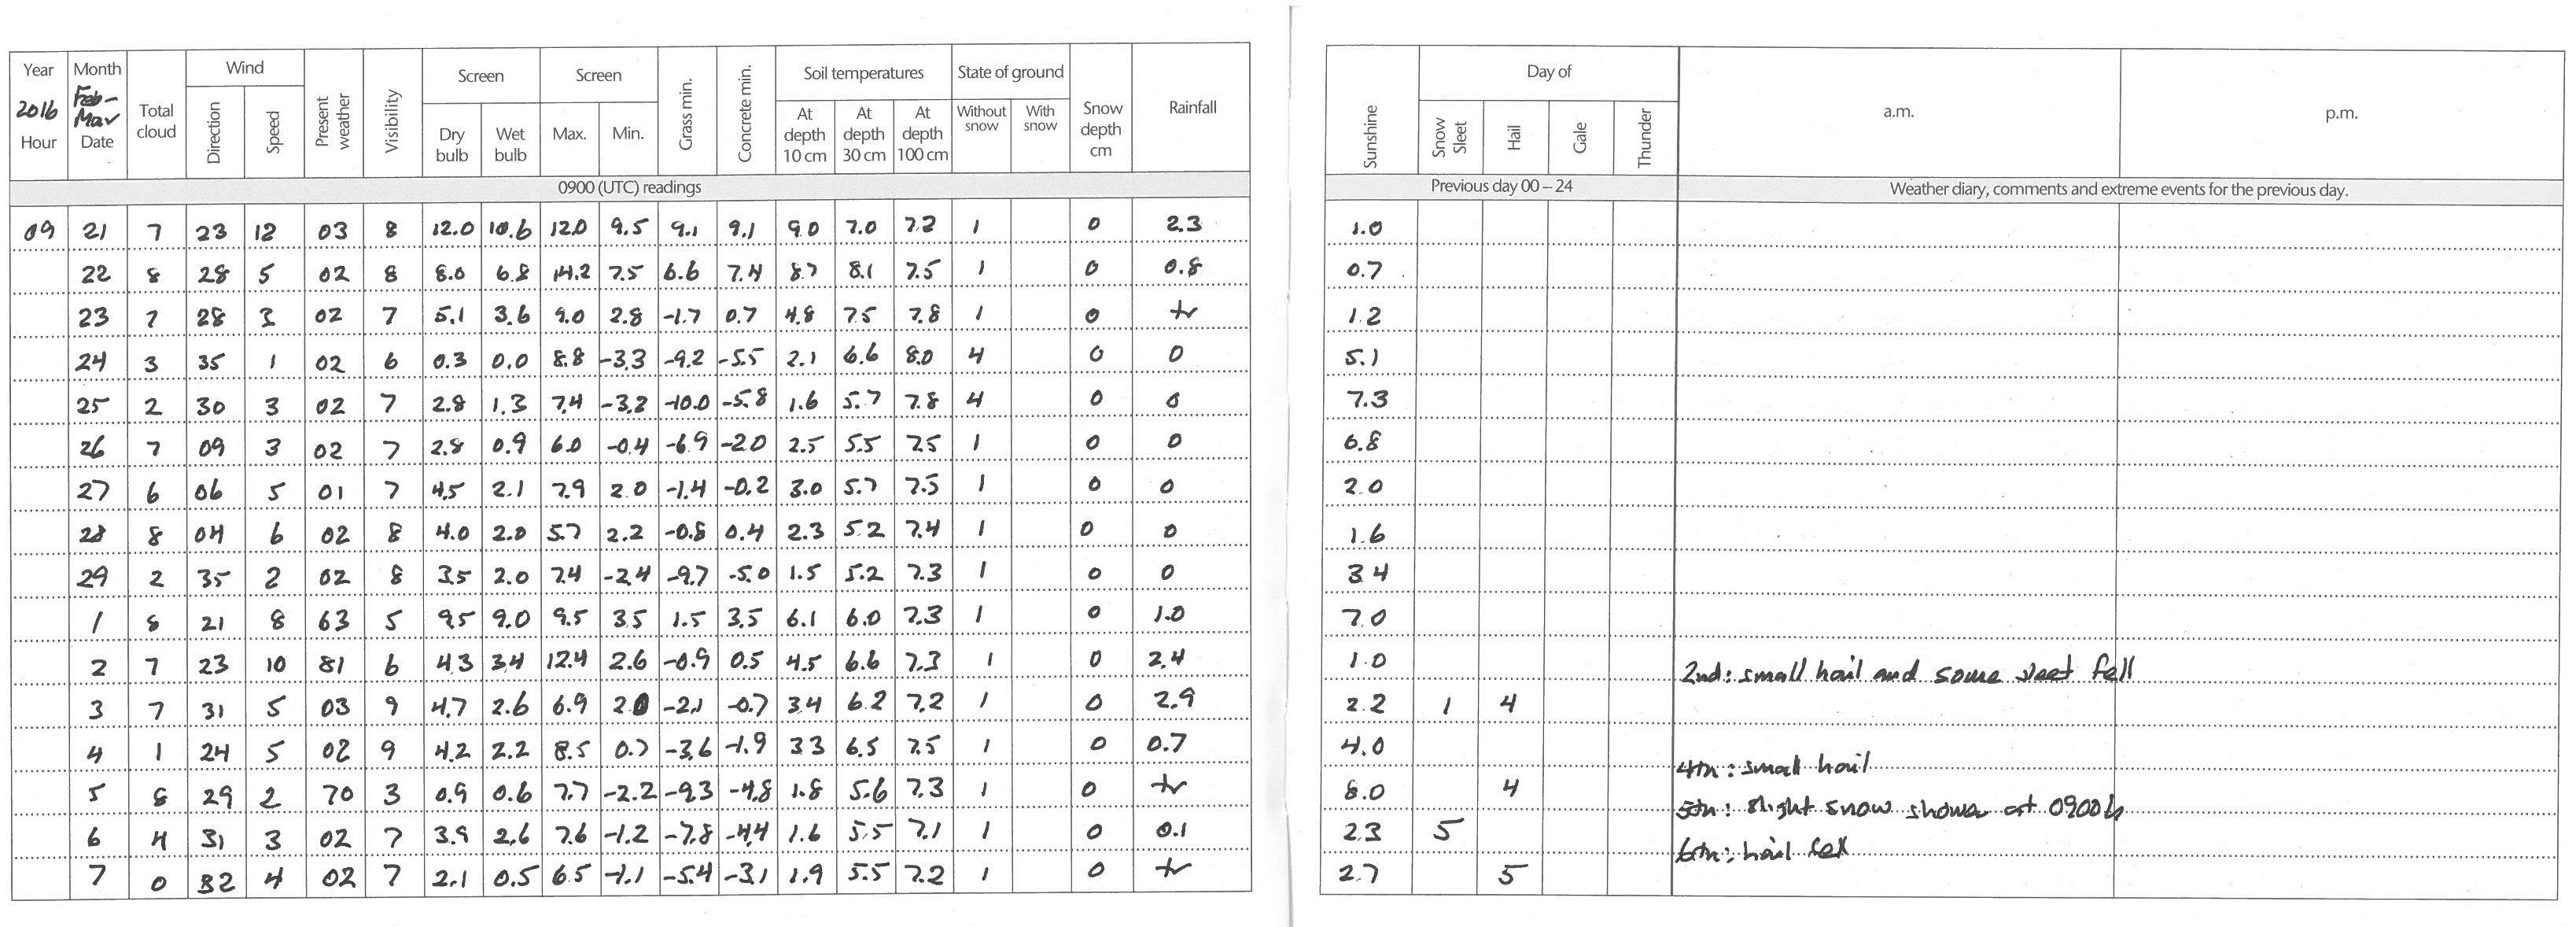 Year Month Wind Screen Screen Soil temperatures State of ground Day of
2016 Feb- Mar Total cloud Direction Speed Present weather Visibility Dry bulb Wet bulb Max. Min. Grass min. Concrete min. At depth 10 cm At depth 30 cm At depth 100 cm Without snow With snow Snow depth cm Rainfall Sunshine Snow Sleet Hail Gale Thunder a.m. p.m.
Hour Date
0900 (UTC) readings Previous day 00 – 24 Weather diary, comments and extreme events for the previous day.
09 21 7 23 12 03 8 12.0 10.6 12.0 9.5 9.1 9.1 9.0 7.0 7.2 1 0 2.3 1.0
22 8 28 5 02 8 8.0 6.8 14.2 7.5 6.6 7.4 8.7 8.1 7.5 1 0 0.8 0.7
23 7 28 3 02 7 5.1 3.6 9.0 2.8 -1.7 0.7 4.8 7.5 7.8 1 0 tr 1.2
24 3 35 1 02 6 0.3 0.0 8.8 -3.3 -9.2 -5.5 2.1 6.6 8.0 4 0 0 5.1
25 2 30 3 02 7 2.8 1.3 7.4 -3.2 -10.0 -5.8 1.6 5.7 7.8 4 0 0 7.3
26 7 09 3 02 7 2.8 0.9 6.0 -0.4 -6.9 -2.0 2.5 5.5 7.5 1 0 0 6.8
27 6 06 5 01 7 4.5 2.1 7.9 2.0 -1.4 -0.2 3.0 5.7 7.5 1 0 0 2.0
28 8 04 6 02 8 4.0 2.0 5.7 2.2 -0.8 0.4 2.3 5.2 7.4 1 0 0 1.6
29 2 35 2 02 8 3.5 2.0 7.4 -2.4 -9.7 -5.0 1.5 5.2 7.3 1 0 0 3.4
1 8 21 8 63 5 9.5 9.0 9.5 3.5 1.5 3.5 6.1 6.0 7.3 1 0 1.0 7.0
2 7 23 10 81 6 4.3 3.4 12.4 2.6 -0.9 0.5 4.5 6.6 7.3 1 0 2.4 1.0 2nd: small hail and some sleet fell
3 7 31 5 03 9 4.7 2.6 6.9 2.0 -2.1 -0.7 3.4 6.2 7.2 1 0 2.9 2.2 1 4
4 1 24 5 02 9 4.2 2.2 8.5 0.7 -3.6 -1.9 3.3 6.5 7.5 1 0 0.7 4.0
4th: small hail
5 8 29 2 70 3 0.9 0.6 7.7 -2.2 -9.3 -4.8 1.8 5.6 7.3 1 0 tr 8.0 4
5th: slight snow shower at 0900h
6 4 31 3 02 7 3.9 2.6 7.6 -1.2 -7.8 -4.4 1.6 5.5 7.1 1 0 0.1 2.3 5
6th: hail fell
7 0 32 4 02 7 2.1 0.5 6.5 -1.1 -5.4 -3.1 1.9 5.5 7.2 1 0 tr 2.7 5